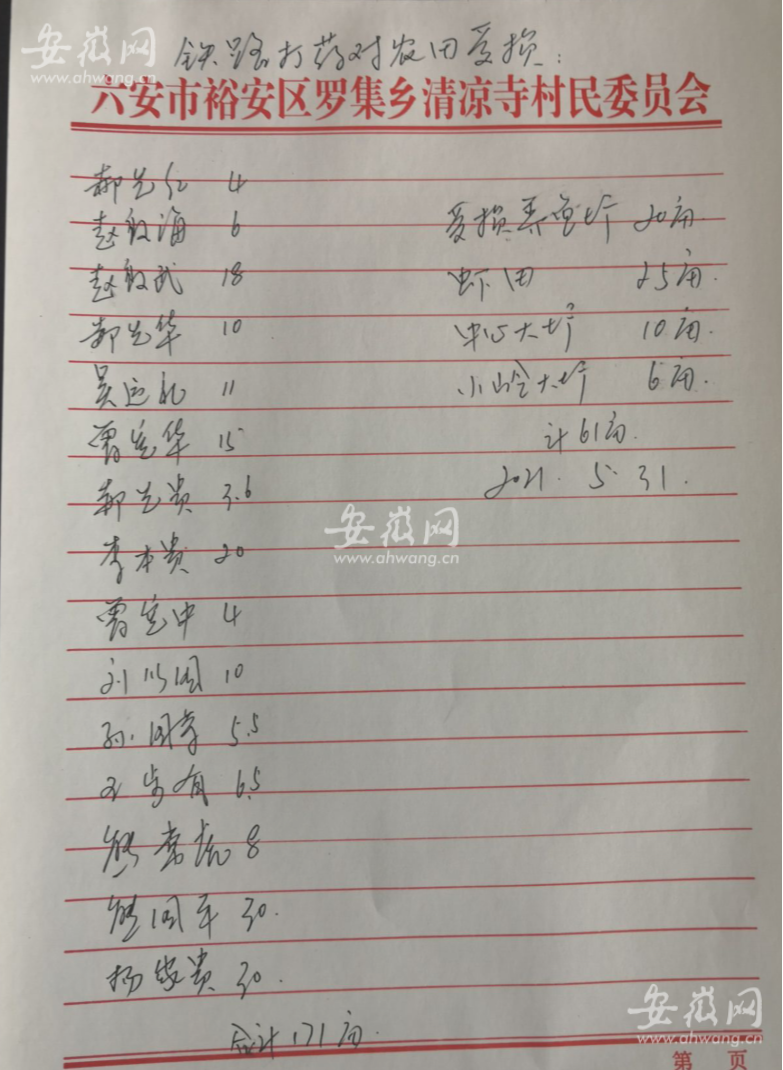 安徽网
www.ahwang.cn
铁路打药对农田受损:
六安市裕安区罗集乡清凉寺村民委员会
郝先红 4
赵殿海 6
赵殿武 18
郝先华 10
吴运礼 11
曾宪华 15
郝先贵 3.6
李本贵 20
曾宪中 4
刘以国 10
孙国字 5.5
步有 6.5
熊常虎 8
熊国平 30.
杨家贵 30.
合计171亩.
受损养鱼圩 20亩.
虾田 25亩.
中心大圩 10亩.
小岭大圩 6亩.
计61亩.
2021. 5. 31.
安徽网
www.ahwang.cn
安徽网
www.ahwang.cn
第 页